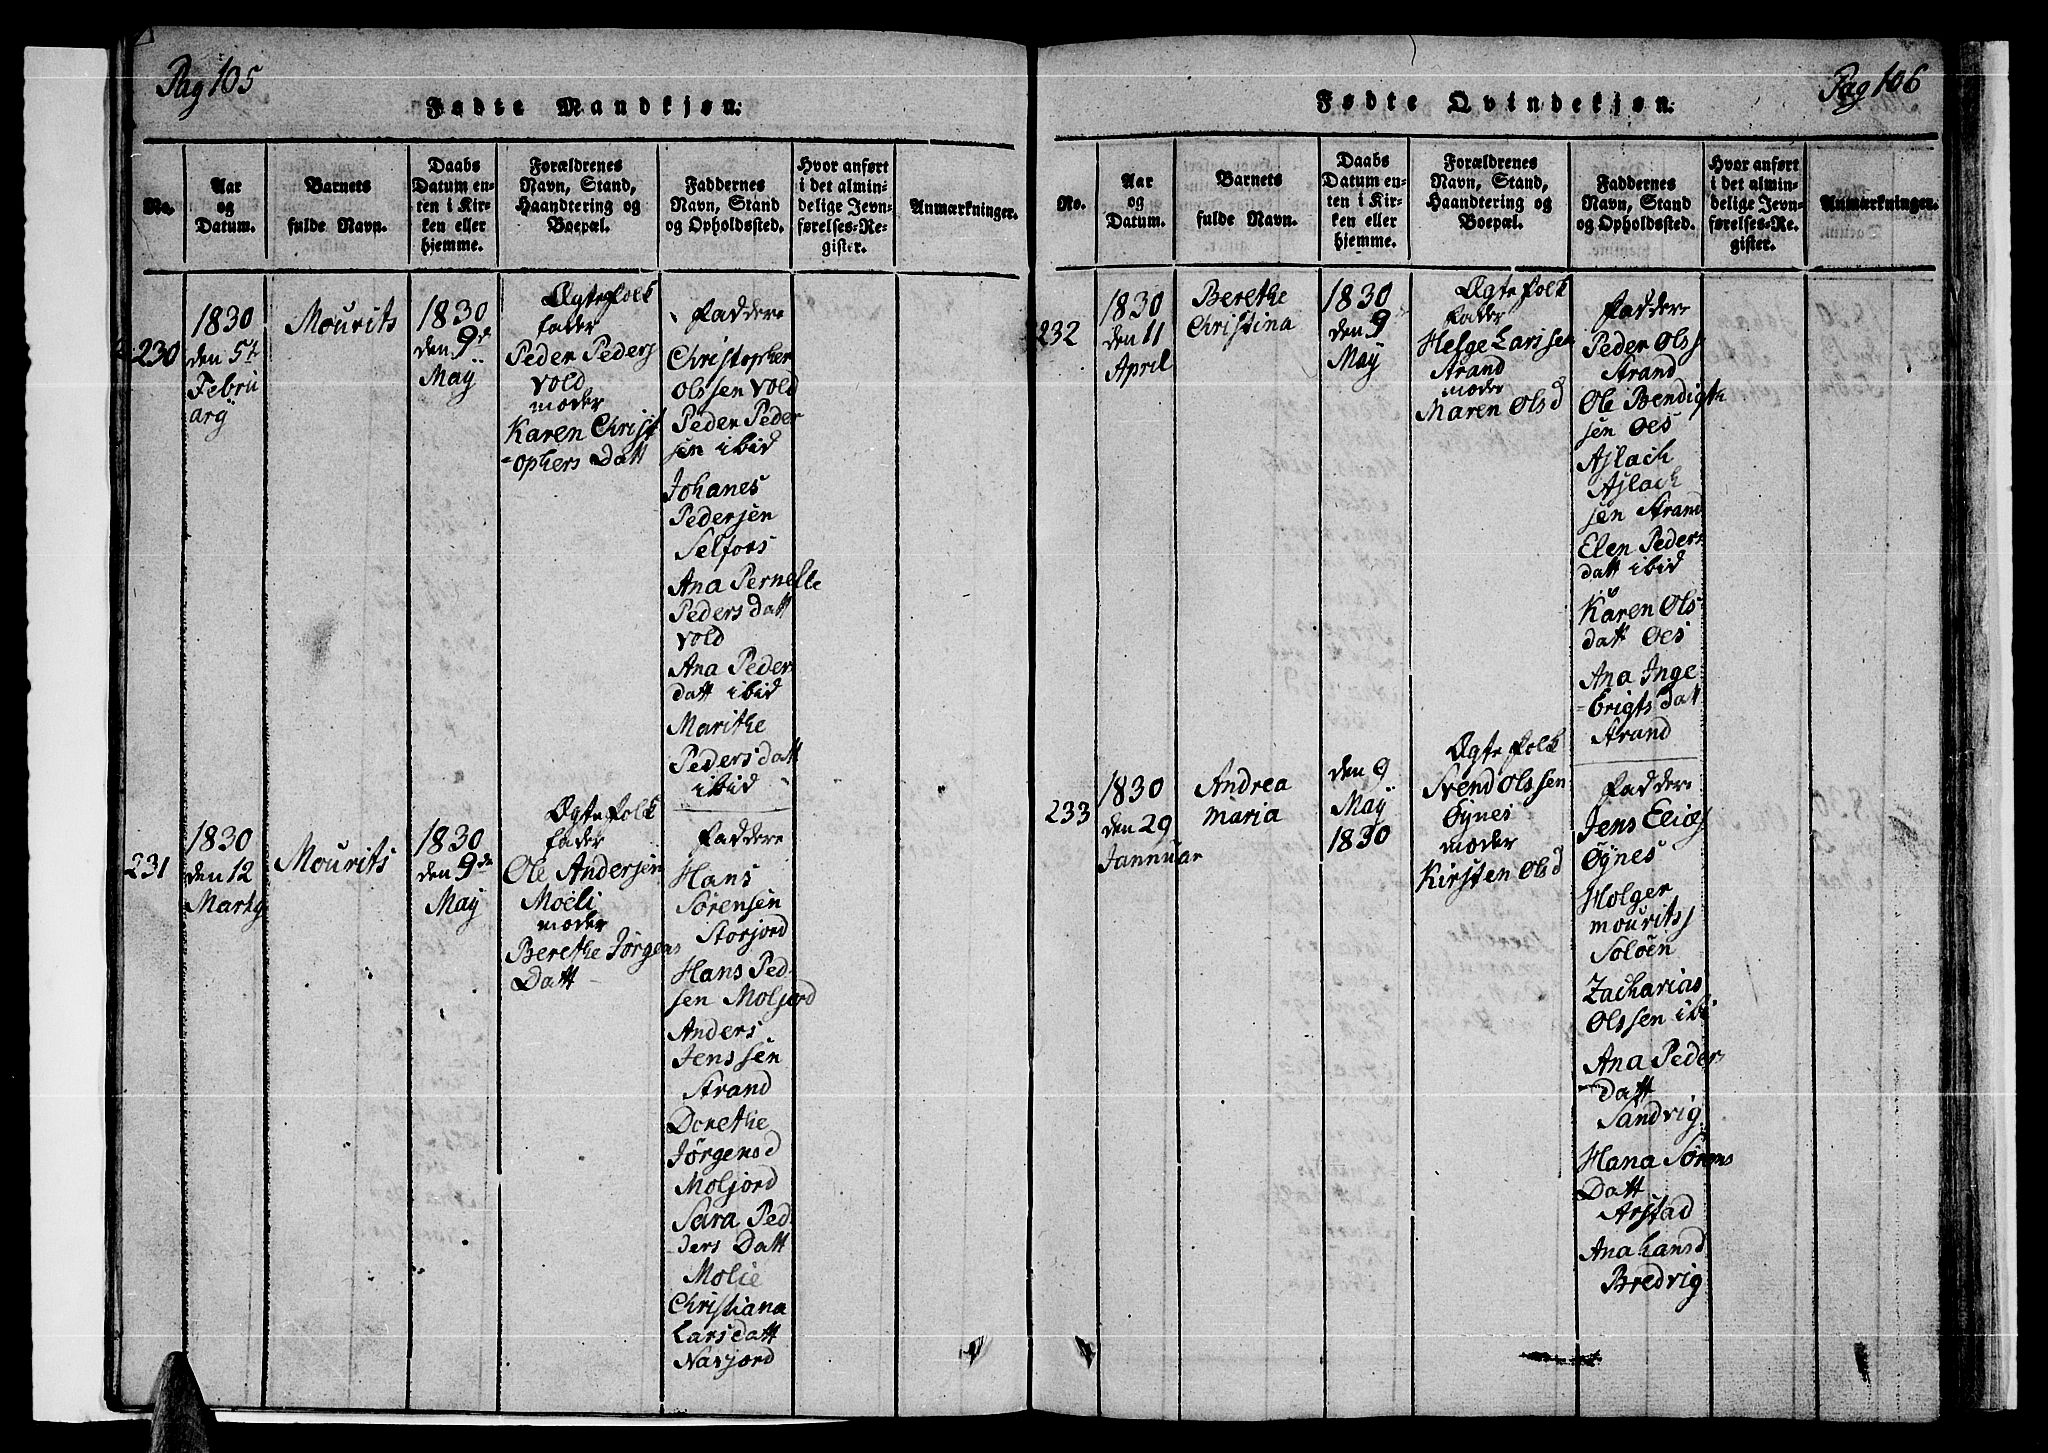 Pag 105
Fødte Mandkjøn.
No.
Aar
og
Datum.
Barnets
fulde Navn.
Daabs
Datum en-
ten i Kir-
ken eller
hjemme.
Forældrenes
Navn, Stand,
Haandtering og
Boepæl.
Faddernes
Navn, Stand
og Opholdssted.
Hvor anført
i det almin-
delige Jevn-
førelses-Re-
gister.
Anmærkninger.
230
1830
den 5t
Febru
arÿ
Mourits
1830
den 9d
Maÿ
Ægtefolk
fader
Peder Peders
Vold
moder
Karen Christ
-ophers Datt
Faddere
Christopher
Olssen Vold
Peder Peder
sen ibid
Johanes
Pedersen
Selfors
Ana Pernelle
Peders datt
Vold
Ana Peder
datt ibid
Marithe
Peders datt
ibid
231
1830
den 12
Marty
Mourits
1830
den 9de
Maÿ
Ægtefolk
fader
Ole Andersen
Moeli
moder
Berethe Jørgens
Datt
Faddere
Hans
Sørensen
Storjord
Hans Ped
sen Moljord
Anders
Jenssen
Strand
Dorethe
Jørgensd
Moljord
Sara Ped
-ders Datt
Molie
Christiana
Larsdatt
Navjord
Pag 106
Fødte Qvindekjøn.
No.
Aar
og
Datum.
Barnets
fulde Navn.
Daabs
Datum en-
ten i Kir-
ken eller
hjemme.
Forældrenes
Navn, Stand,
Haandtering og
Boepæl.
Faddernes
Navn, Stand
og Opholdssted.
Hvor anført
i det almin-
delige Jevn-
førelses-Re-
gister.
Anmærkninger.
232
1830
den 11
April
Berethe
Christina
1830
den 9
Maÿ
Ægtefolk
fader
Helge Larssen
Strand
moder
Maren Olsd
Faddere
Peder Olss
Strand
Ole Bendigt
sen Oes
Aslach
Aslach
sen Strand
Elen Peders
datt ibid
Karen Ols
datt Oes
Ana Inge
-brigts datt
Strand
233
1830
den 29
Jannuar
Andrea
Maria
den 9
Maÿ
1830
Ægtefolk
Svend Olssen
Øÿnes
moder
Kirsten Olsd
Faddere
Jens Elias
Øÿnes
Holger
mouritss
Soløen
Zacharias
Olssen ibi
Ana Peder
Datt
Sandvig
Hana Sørens
Datt
Arstad
Ana Hansd
Bredvig